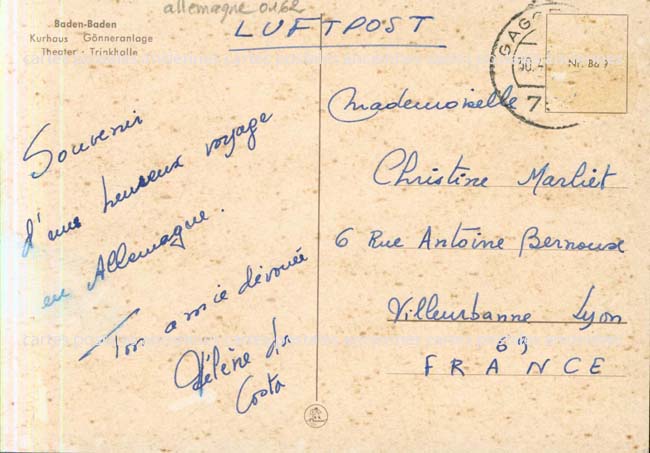 allemagne 0162
LUFTPOST
Baden-Baden
Kurhaus Gönneranlage
Theater - Trinkhalle
GAGG
30.4
7
Nr. 869
Souvenir
d'une heureux voyage
en Allemagne.
Ton amie dévouée
Hélène da
Costa
Mademoiselle
Christine Marliet
6 Rue Antoine Bernoux
Villeurbanne Lyon
69
FRANCE